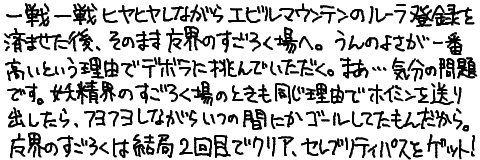 一戦一戦ヒヤヒヤしながらエビルマウンテンのルーラ登録を
済ませた後、そのまま友界のすごろく場へ。うんのよさが一番
高いという理由でデボラに挑んでいただく。まあ…気分の問題
です。妖精界のすごろく場のときも同じ理由でホイミンを送り
出したら、フヨフヨしながらいつの間にかゴールしてたもんだから。
友界のすごろくは結局2回目でクリア、セレブリティパスをゲット!